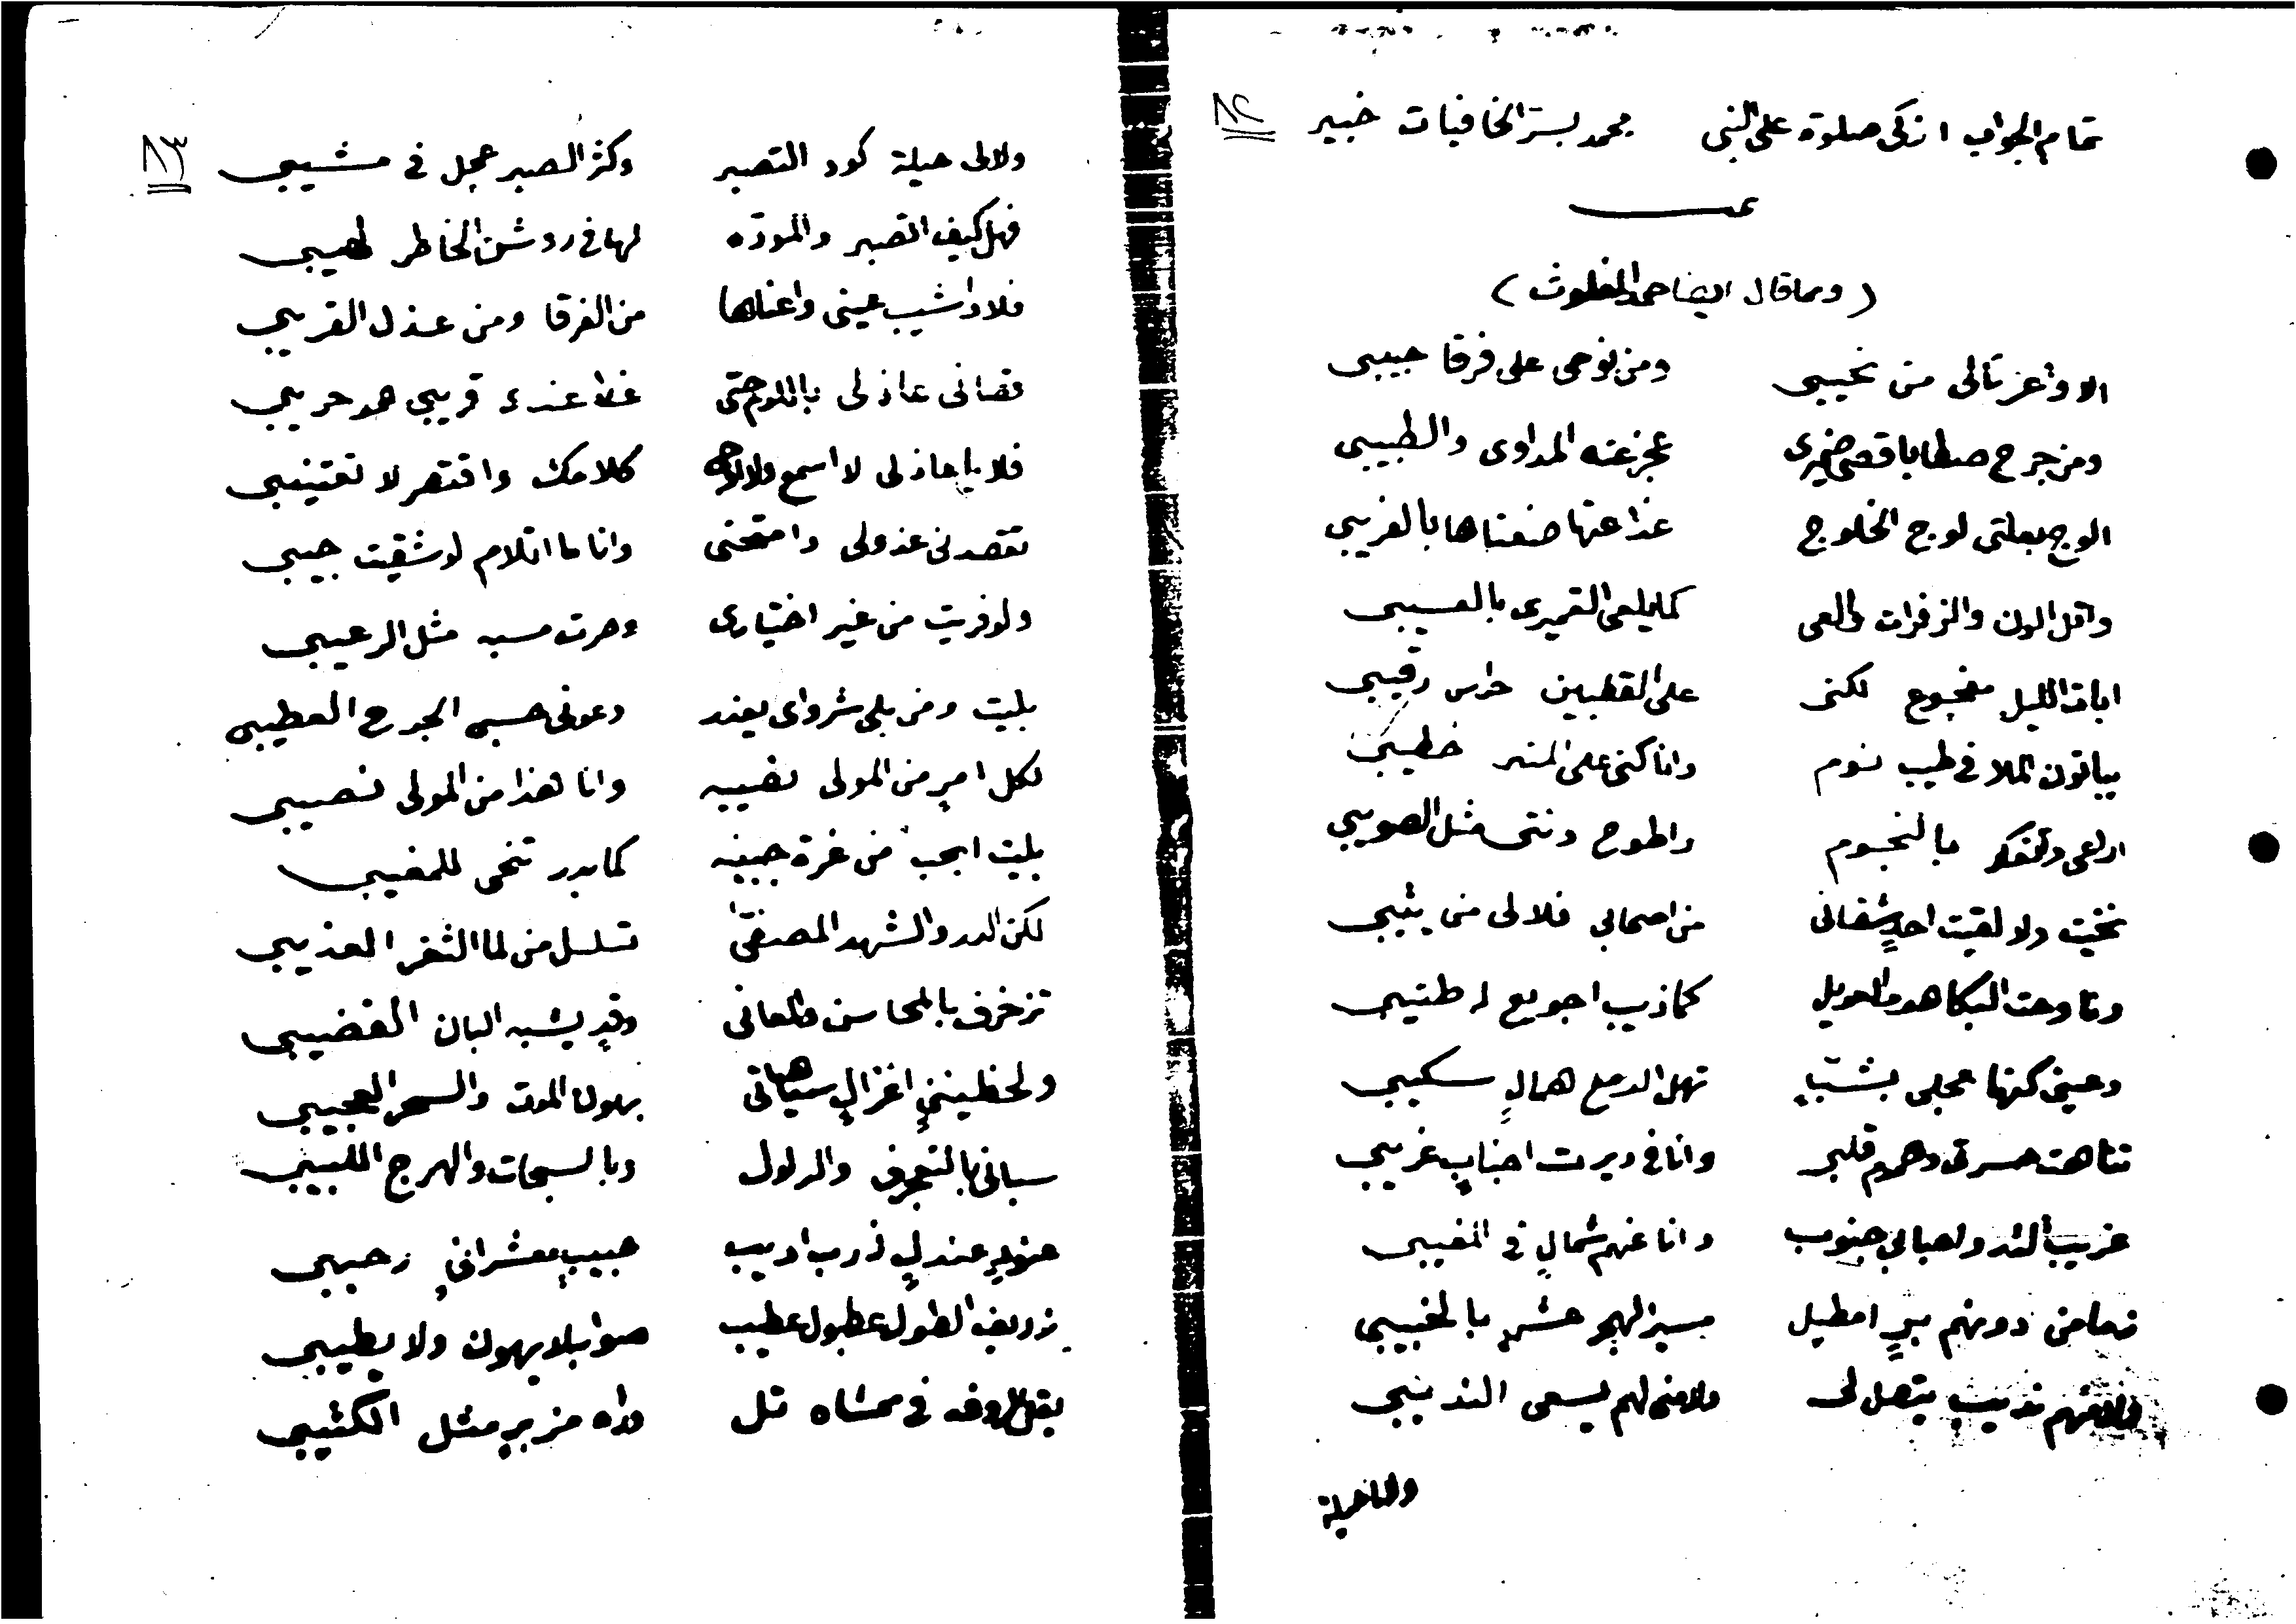 ٨٢
تمام الجواب ازكى صلوة على النبى محمد بسر الخافيات خبير
(ومما قال ايضا حمد المغلوث)
الا واعزتالى من نحيبى ومن نوحى على فرقا حبيبى
ومن جرح صطا باقصى ضميرى عجز عنه المداوى والطبيبى
الوج بعلتى لوج الخلوج غذا عنها ضغناها بالغريبى
واقل الون والزفرات والعى كما يلعى القميرى بالعسيبى
ابات الليل مفجوع لكنى على القطبين حراس رقيبى
يباتون الملا فى طيب نوم وانا كنى على المنبر خطيبى
ارعى وتفكر بالنجوم واطوح ونتى مثل الصويبى
نخيت ولا لقيت احدٍ شفانى من اصحابى فلا لى من يثيبى
وتاوحت البكا هو والعويل كما ذيب اجويع
وعينى كنها عجلى بشتٍ تهل الدمع همالٍ سكيبى
تناهت حسرتى وهموم قلبى وانا فى ديرت اجنابٍ غريبى
غريب الدار واحبابى جنوب وانا عنهم شمالٍ فى المغيبى
فما من دونهم برٍ امطيل مسير الهجر عشرٍ بالخبيبى
منهم نديب يتصل لى ولا منى لهم يسعى النديبى
٨٣
ولا لى حيلة كود التصبر وكثر الصبر عجل فى مشيبى
فهل كيف الصبر والمودّه لها فى روشن الخاطر لهيبى
فلا واشيب عينى واعناها من الفرقا ومن عذل القريبى
نصانى عاذلى باللوم حتى غدا عندى قريبى هو حريبى
فلا يا عاذلى لا اسمع ولا اوحى كلامك واقتصر لا تعتنيبى
تقصد لى عذولى وامتحنى وانا ما اتلام لو شقيت جيبى
ولو فريت من غير اختيارى وصرت مسبه مثل الرعيبى
بليت ومن بلى شرواى يعذر دعونى حسبى الجرح العطيبى
لكل امرٍ من المولى نصيبه وانا هذا من المولى نصيبى
بليت ابحب من غرة جبينه كما بدر تنحى للمغيبى
لكن الدر والشهد المصنّفى تسلسل من لما الثغر العذيبى
تزخرف بالمحاسن والمعانى وقدٍ يشبه البان القضيبى
ولحظينٍ اغزالٍ سباهاتى بهون الموت والسحر العجيبى
سبانى بالتعجرف والدلول وبالسبجات والهرج اللبيبى
عنودٍ عندلٍ ذرب اديب حبيبٍ معشرانىٍ رحيبى
رديف الطول عطبول عطيب صوابٍ لا يهون ولا يطيبى
فى ممشاه تل وراه من برٍ مثل الكثيبى